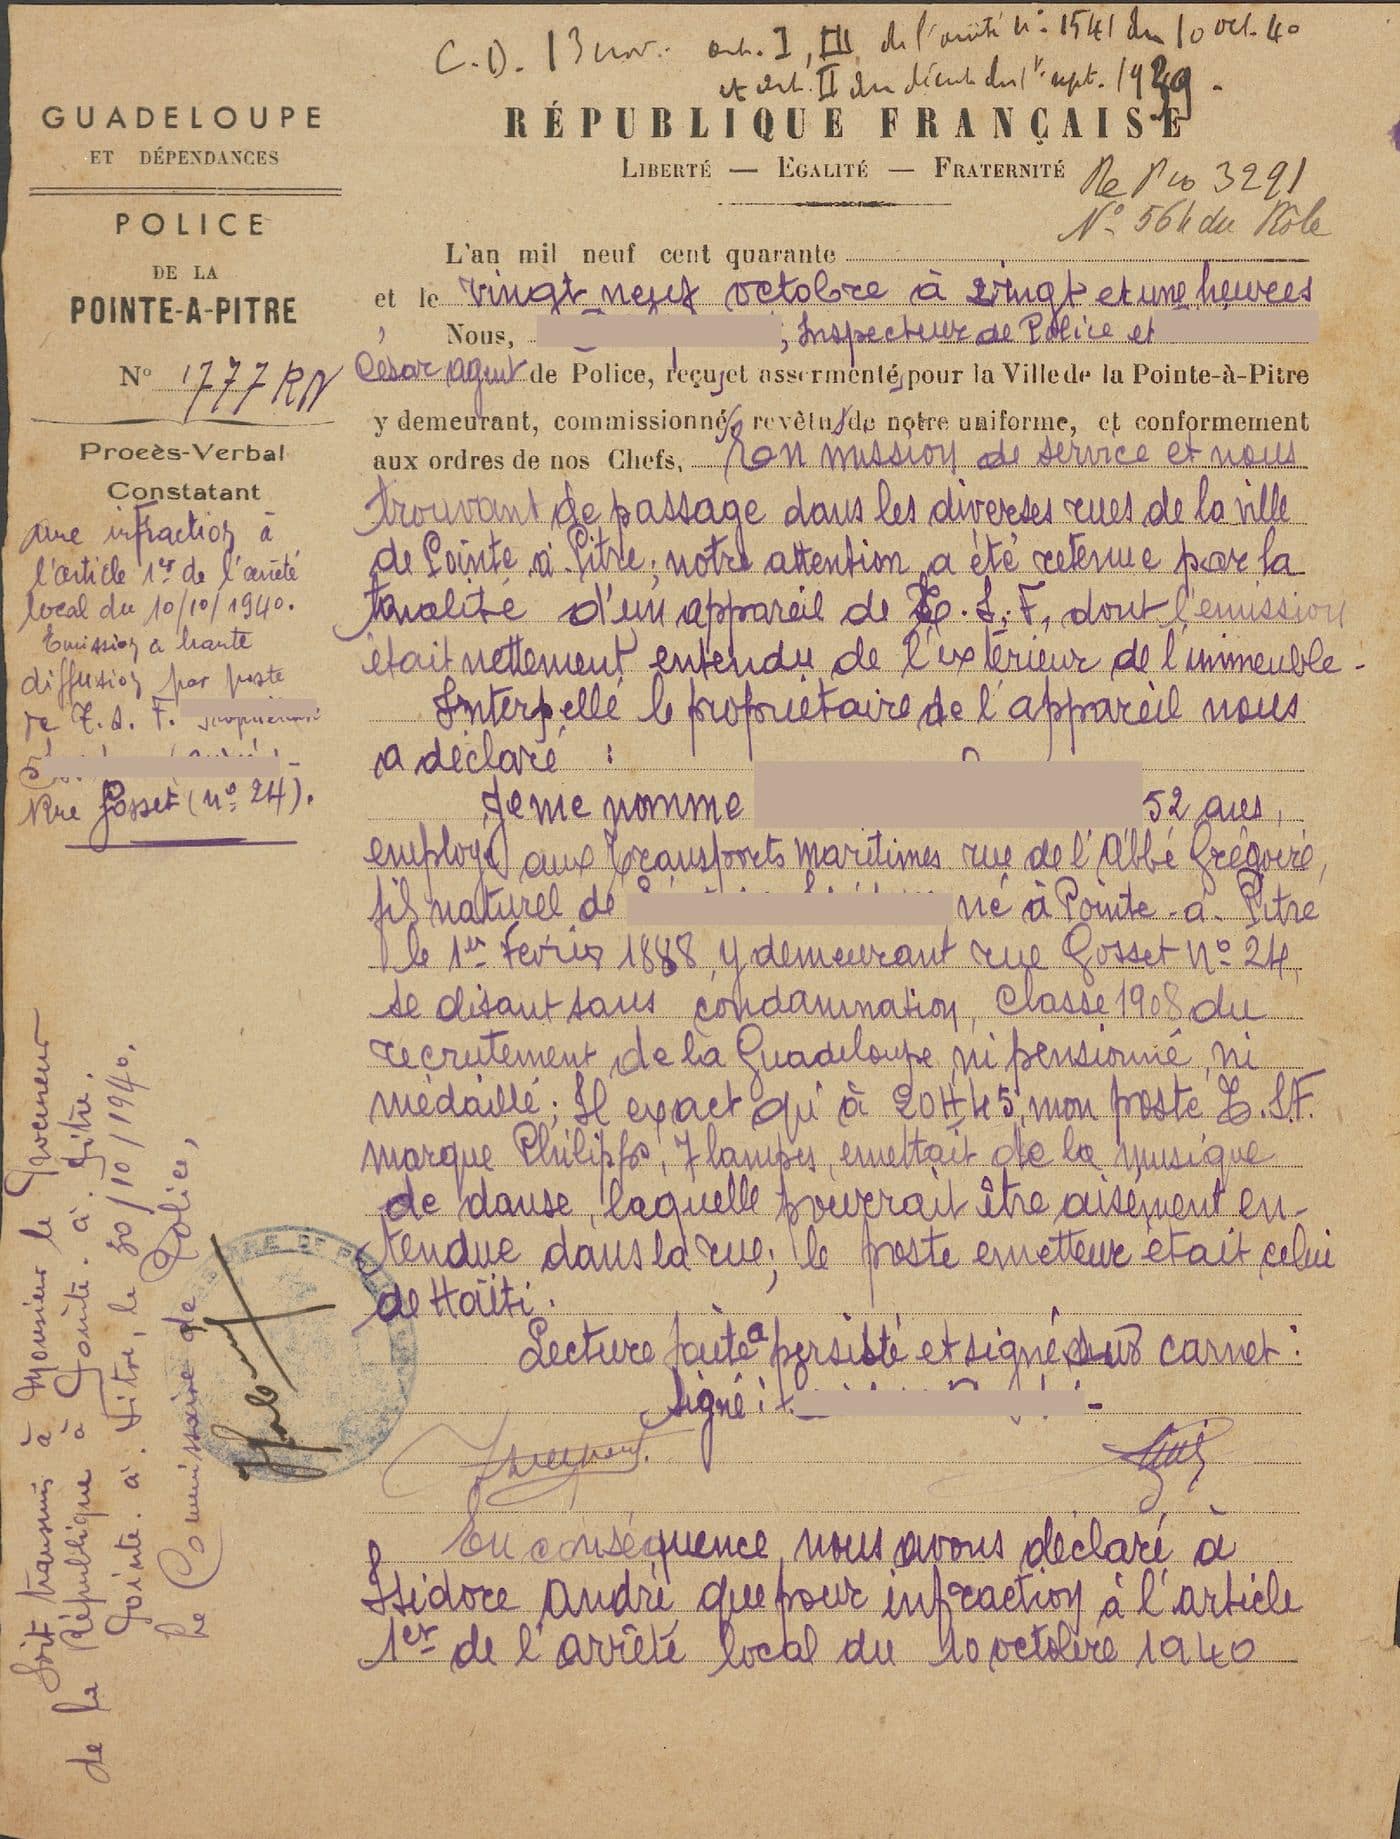 C.D. 13 nov. art. I, III de l'arrêté n° 1541 du 10 oct. 40
et art. II du décret du 1er sept. 1939.
GUADELOUPE
ET DÉPENDANCES
POLICE
DE LA
POINTE-A-PITRE
N° 1777 RN
Procès-Verbal
Constatant
une infraction à
l'article 1er de l'arrêté
local du 10/10/1940.
Emission à haute
diffusion par poste
de T.S.F.
Rue Gosset (n° 24).
RÉPUBLIQUE FRANÇAISE
LIBERTÉ — EGALITÉ — FRATERNITÉ
Re Pro 3291
N° 564 du Rôle
L'an mil neuf cent quarante
et le vingt neuf octobre à vingt et une heures
Nous, ; Inspecteur de Police et
César agent de Police, reçus et assermentés pour la Ville de la Pointe-à-Pitre
y demeurant, commissionnés, revêtus de notre uniforme, et conformement
aux ordres de nos Chefs, En mission de service et nous
trouvant de passage dans les diverses rues de la ville
de Pointe à Pitre; notre attention a été retenue par la
tonalité d'un appareil de T.S.F, dont l'emission
était nettement entendu de l'extérieur de l'immeuble -
Interpellé le propriétaire de l'appareil nous
a déclaré :
Je me nomme 52 ans,
employé aux transports maritimes rue de l'Abbé Grégoire,
fils naturel de né à Pointe-à-Pitre
le 1er Fevrier 1888, y demeurant rue Gosset n° 24,
se disant sans condamnation, Classe 1908 du
recrutement de la Guadeloupe, ni pensionné, ni
médaillé; Il exact qu'à 20H45, mon poste T.S.F.
marque Philipps, 7 lampes, emettait de la musique
de danse, laquelle pouvrait être aisément en-
tendue dans la rue; le poste emetteur était celui
de Haïti.
Lecture faite a persisté et signé sur carnet :
Signé :
En conséquence, nous avons déclaré à
Isidore André que pour infraction à l'article
1er de l'arrêté local du 10 octobre 1940
Soit transmis à Monsieur le Procureur
de la République à Pointe-à-Pitre.
Pointe-à-Pitre, le 30/10/1940.
Le Commissaire de Police,